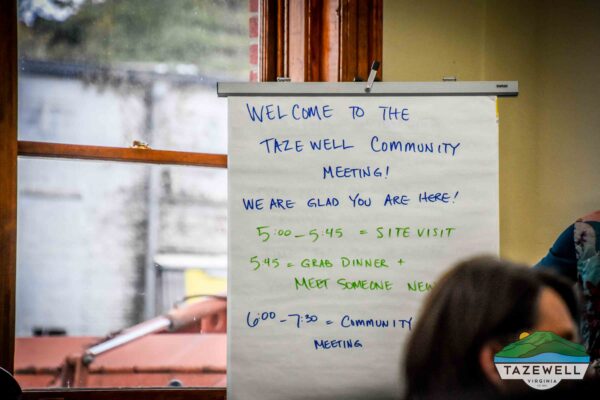 WELCOME TO THE
TAZEWELL COMMUNITY
MEETING!
WE ARE GLAD YOU ARE HERE!
5:00 - 5:45 = SITE VISIT
545 = GRAB DINNER +
MEET SOMEONE NEW
6:00 - 7:30 = COMMUNITY
MEETING
TAZEWELL
VIRGINIA